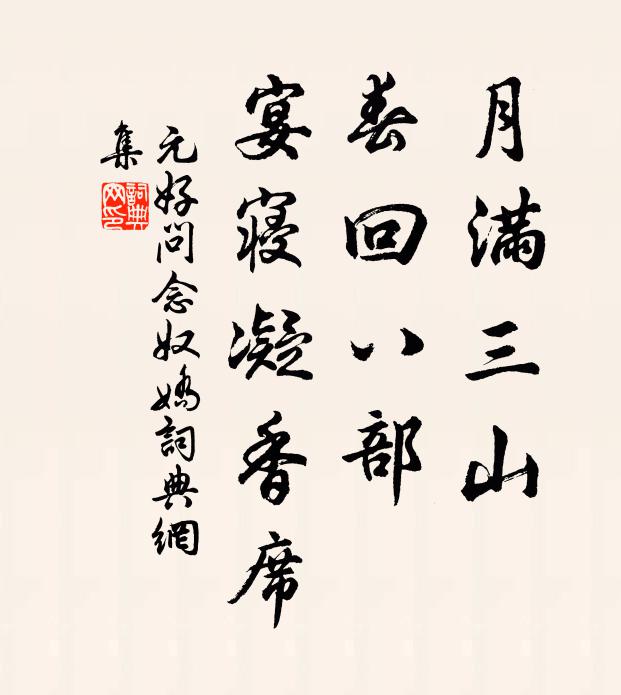 月满三山
春回八部
宴寝凝香席
元好问念奴娇词典網
集
詞典網印